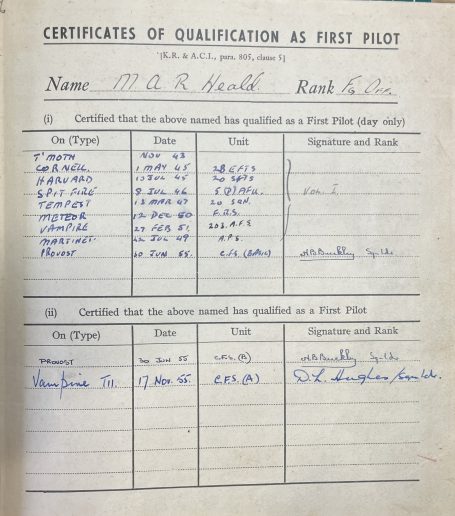 CERTIFICATES OF QUALIFICATION AS FIRST PILOT
[K.R. & A.C.I., para. 805, clause 5]
Name M A R Heald. Rank Fg Off.
(i) Certified that the above named has qualified as a First Pilot (day only)
On (Type) Date Unit Signature and Rank
T'MOTH NOV 43
CORNELL. 1 MAY 45 28 EFTS
HARVARD 13 JUL 45 20 SFTS
SPIT FIRE 8 JUL 46 5 (P) AFU. Vol. I
TEMPEST 13 MAR 47 20 SQN.
METEOR 12 DEC 50
VAMPIRE 27 FEB 51. 203 A.F.S
MARTINET. 22 JUL 49 A.P.S.
PROVOST 30 JUN 55. C.F.S. (BASIC) Buckley Sq. Ldr
(ii) Certified that the above named has qualified as a First Pilot
On (Type) Date Unit Signature and Rank
PROVOST 30 JUN 55 C.F.S. (B) Buckley Sq. Ldr
Vampire T11. 17 Nov. 55. C.F.S. (A) D. L. Hughes Sqn Ldr.